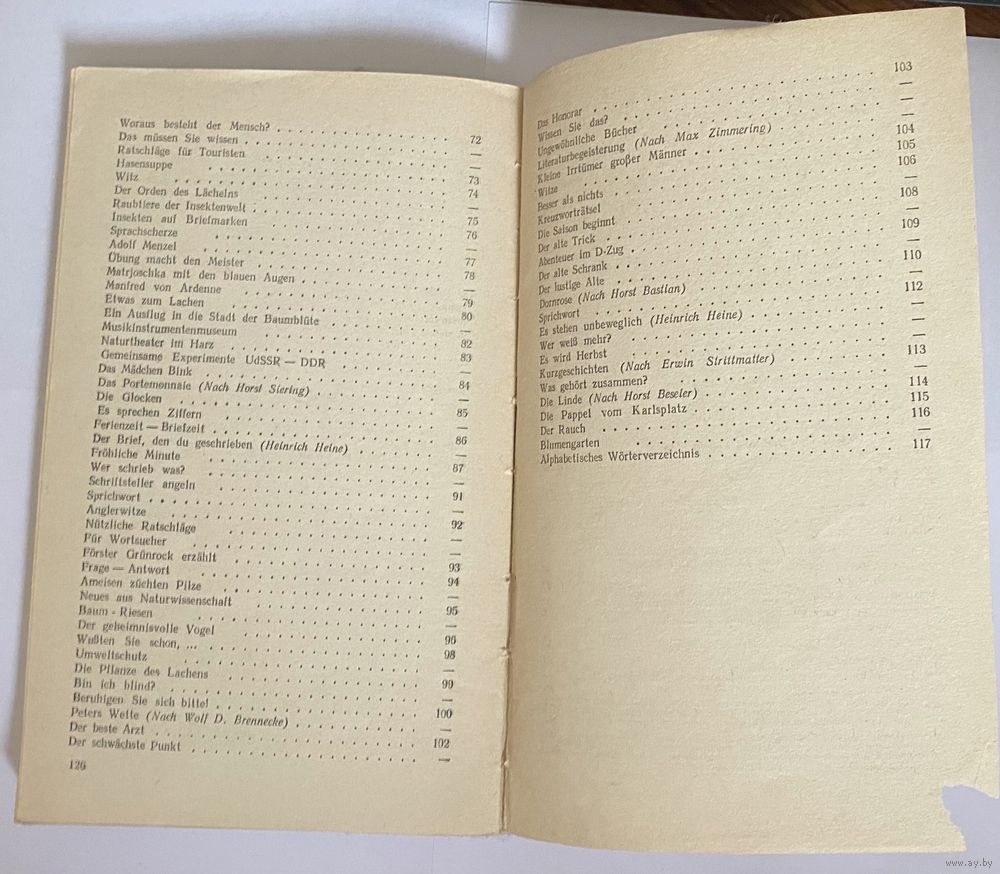 Woraus besteht der Mensch? . . . 72
Das müssen Sie wissen . . . —
Ratschläge für Touristen . . . —
Hasensuppe . . . 73
Witz . . . 74
Der Orden des Lächelns . . . —
Raubtiere der Insektenwelt . . . 75
Insekten auf Briefmarken . . . 76
Sprachscherze . . . —
Adolf Menzel . . . 77
Übung macht den Meister . . . 78
Matrjoschka mit den blauen Augen . . . —
Manfred von Ardenne . . . 79
Etwas zum Lachen . . . 80
Ein Ausflug in die Stadt der Baumblüte . . . —
Musikinstrumentenmuseum . . . 82
Naturtheater im Harz . . . 83
Gemeinsame Experimente UdSSR — DDR . . . —
Das Mädchen Bink . . . 84
Das Portemonnaie (Nach Horst Siering) . . . —
Die Glocken . . . 85
Es sprechen Ziffern . . . —
Ferienzeit — Briefzeit . . . 86
Der Brief, den du geschrieben (Heinrich Heine) . . . —
Fröhliche Minute . . . 87
Wer schrieb was? . . . —
Schriftsteller angeln . . . 91
Sprichwort . . . —
Anglerwitze . . . 92
Nützliche Ratschläge . . . —
Für Wortsucher . . . —
Förster Grünrock erzählt . . . 93
Frage — Antwort . . . 94
Ameisen züchten Pilze . . . —
Neues aus Naturwissenschaft . . . 95
Baum - Riesen . . . —
Der geheimnisvolle Vogel . . . 96
Wußten Sie schon, ... . . . 98
Umweltschutz . . . —
Die Pflanze des Lachens . . . 99
Bin ich blind? . . . —
Beruhigen Sie sich bitte! . . . 100
Peters Wette (Nach Wolf D. Brennecke) . . . —
Der beste Arzt . . . 102
Der schwächste Punkt . . . —
126
Das Honorar . . . 103
Wissen Sie das? . . . —
Ungewöhnliche Bücher . . . —
Literaturbegeisterung (Nach Max Zimmering) . . . —
Kleine Irrtümer großer Männer . . . 104
Witze . . . 105
Besser als nichts . . . 106
Kreuzworträtsel . . . —
Die Saison beginnt . . . 108
Der alte Trick . . . —
Abenteuer im D-Zug . . . 109
Der alte Schrank . . . —
Der lustige Alte . . . 110
Dornrose (Nach Horst Bastian) . . . —
Sprichwort . . . 112
Es stehen unbeweglich (Heinrich Heine) . . . —
Wer weiß mehr? . . . —
Es wird Herbst . . . —
Kurzgeschichten (Nach Erwin Strittmatter) . . . 113
Was gehört zusammen? . . . —
Die Linde (Nach Horst Beseler) . . . 114
Die Pappel vom Karlsplatz . . . 115
Der Rauch . . . 116
Blumengarten . . . —
Alphabetisches Wörterverzeichnis . . . 117
www.ay.by